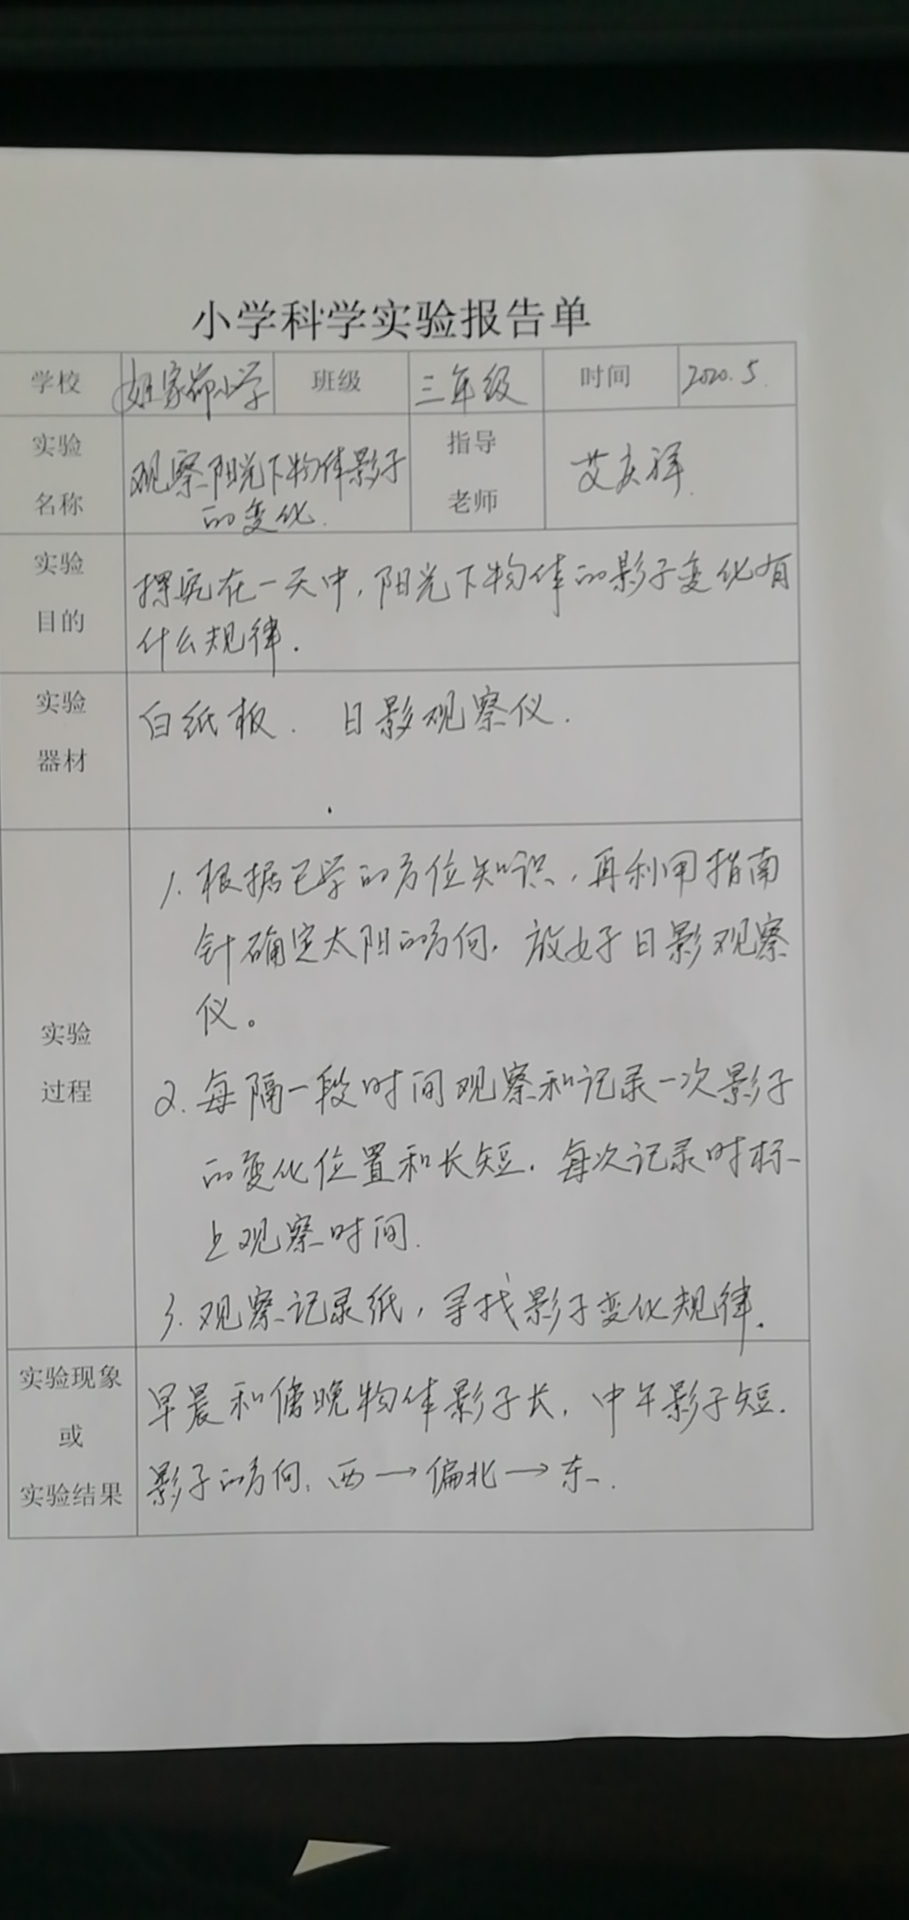 小学科学实验报告单
学校 家 小学 班级 三年级 时间 2020.5.
实验
名称
观察阳光下物体影子
的变化.
指导
老师
艾庆祥.
实验
目的
探究在一天中,阳光下物体的影子变化有
什么规律.
实验
器材
白纸板. 日影观察仪.
实验
过程
1.根据已学的方位知识,再利用指南
针确定太阳的方向,放好日影观察
仪。
2.每隔一段时间观察和记录一次影子
的变化位置和长短.每次记录时标
上观察时间.
3.观察记录纸,寻找影子变化规律.
实验现象
或
实验结果
早晨和傍晚物体影子长,中午影子短.
影子的方向:西→偏北→东.